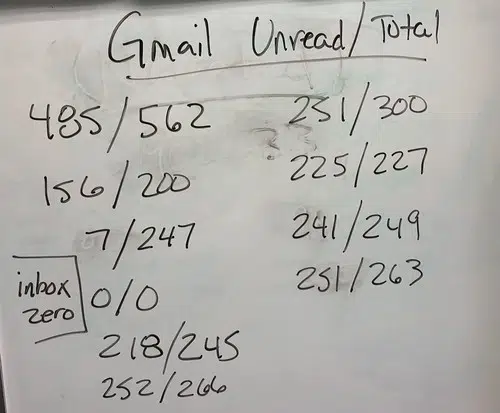 Gmail Unread/Total
485/562
156/200
7/247
inbox zero
0/0
218/245
252/266
251/300
225/227
241/249
251/263